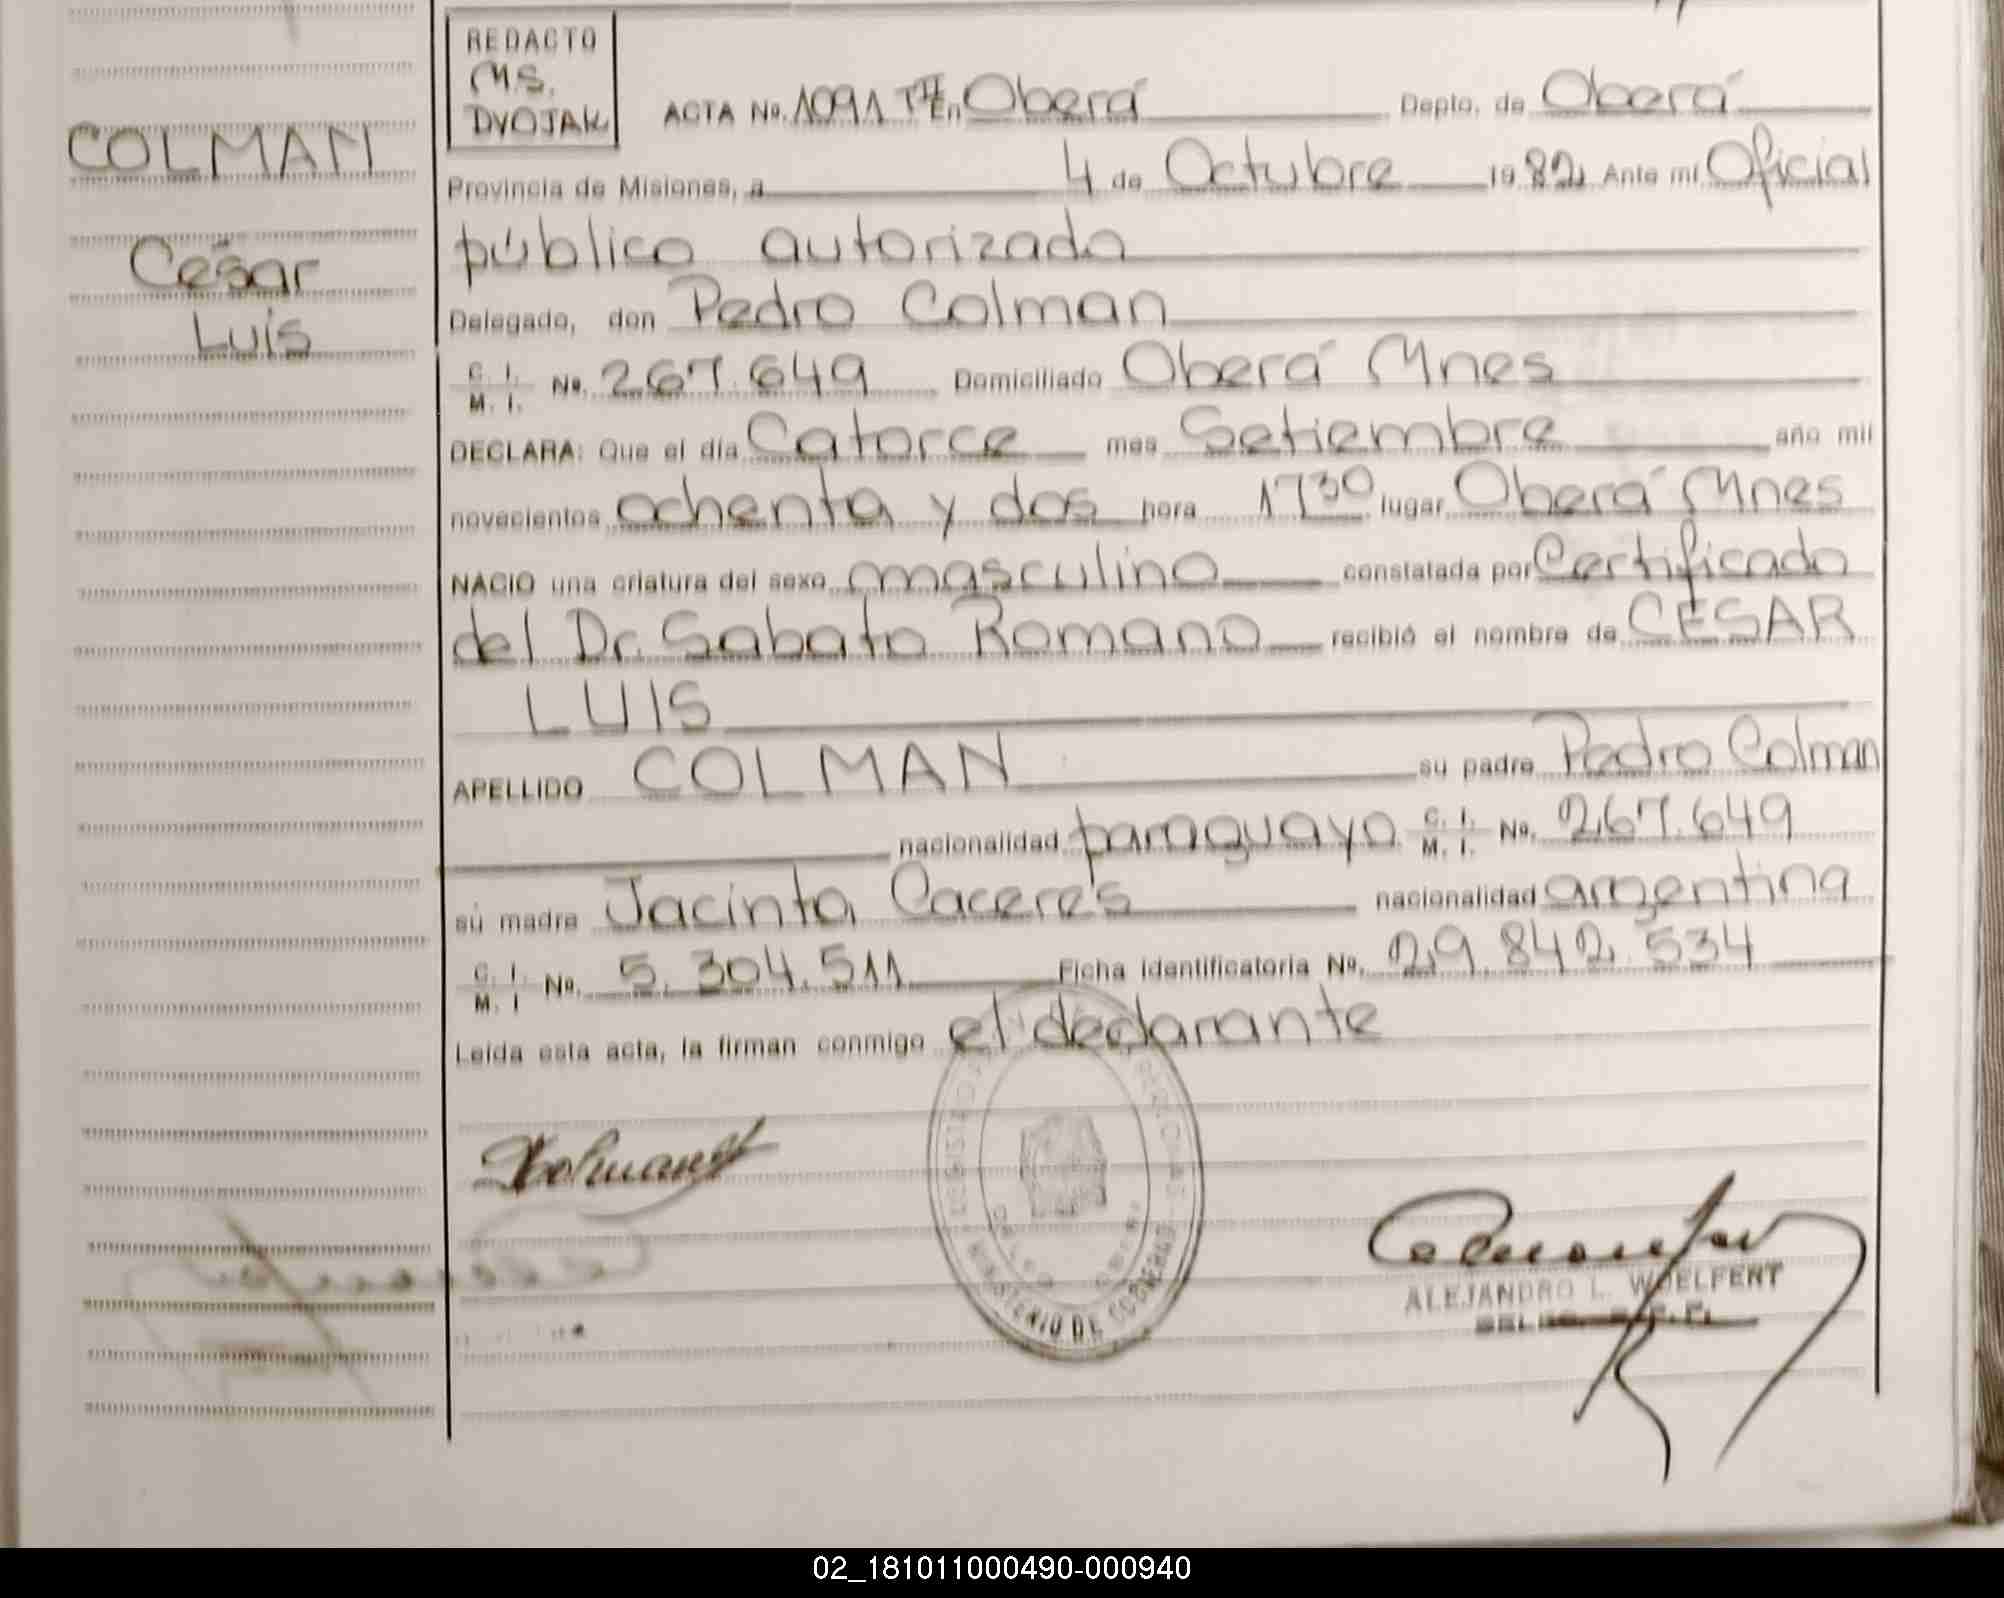 REDACTO
MS.
DVOJAK
ACTA No. 1091 TII En Oberá Depto. de Oberá
COLMAN
Provincia de Misiones, a 4 de Octubre 1982 Ante mí Oficial
César
público autorizado
Luis
Delegado, don Pedro Colman
C. I.
M. I. No. 267.649 Domiciliado Oberá Mnes
DECLARA: Que el día Catorce mes Setiembre año mil
novecientos ochenta y dos hora 17 30 lugar Oberá Mnes
NACIO una criatura del sexo masculino constatada por Certificado
del Dr. Sabato Romano recibió el nombre de CESAR
LUIS
APELLIDO COLMAN su padre Pedro Colman
nacionalidad paraguayo C. I. M. I. No. 267.649
su madre Jacinta Caceres nacionalidad argentina
C. I.
M. I No. 5.304.511 Ficha identificatoria No. 29.842.534
Leída esta acta, la firman conmigo el declarante
MINISTERIO DE GOBIERNO
ALEJANDRO L. WOELFERT
02_181011000490-000940